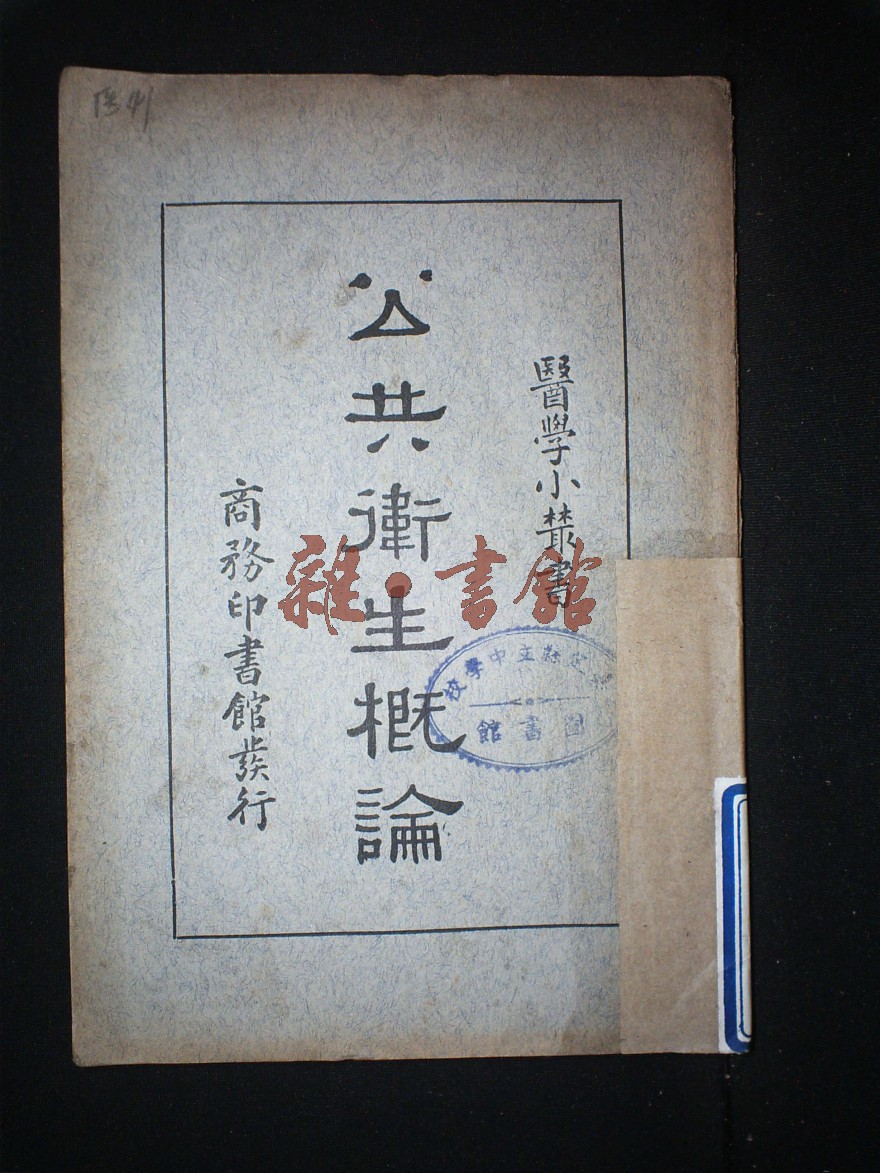 醫學小叢書
公共衛生概論
商務印書館發行
雜·書館
定縣立中學校
圖書館